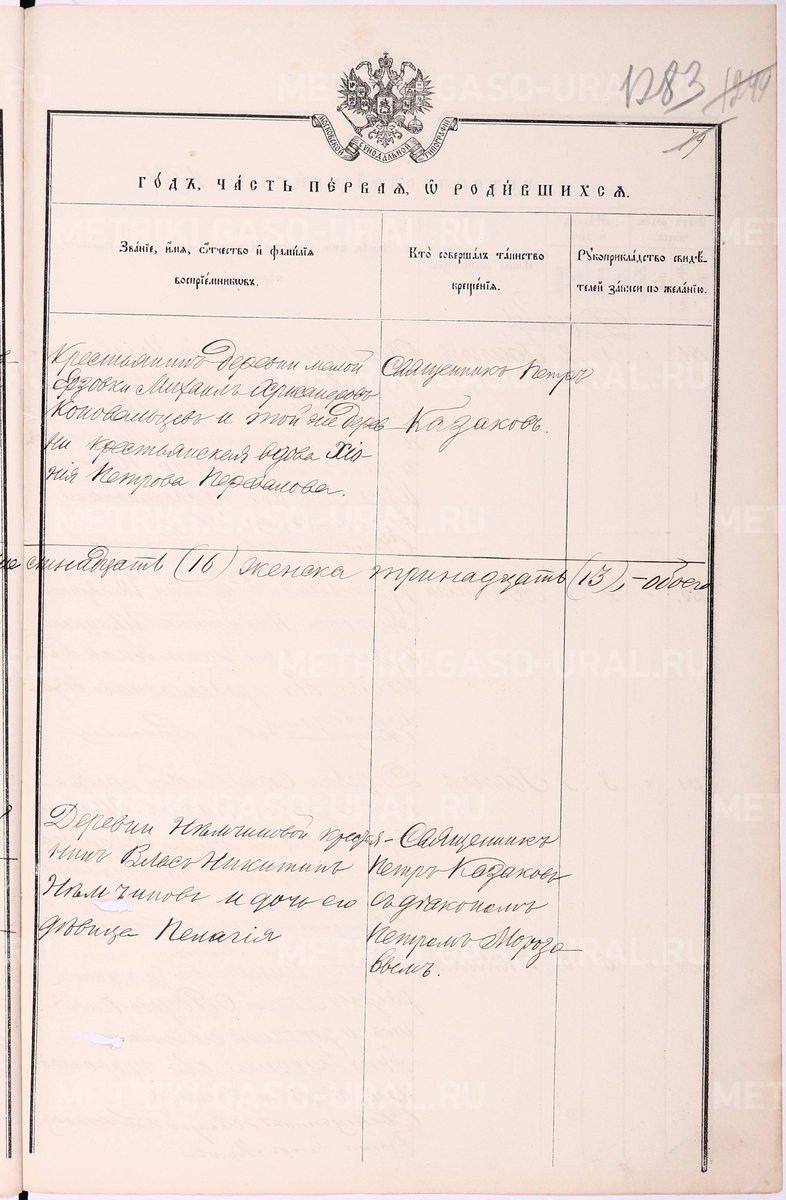 1283 1299
79
МОСКОВСКОЙ СѴНОДАЛЬНОЙ ТИПОГРАФІИ
ГО́ДЪ, ЧА́СТЬ ПЕ́РВАЯ, Ѽ РОДИ́ВШИХСЯ.
Зва́ніе, и҆́мя, ѻ҆́тчество и҆ фами́лія
воспріе́мниковъ.
Кто̀ соверша́лъ та́инство
креще́нія.
Рꙋкоприкла́дство свидѣ́-
телей за́писи по жела́нію.
Крестьянинъ деревни малой
Михаилъ
Коновальцевъ и той же дерев
ни крестьянская вдова Хіо-
нія Петрова
Священникъ Петръ
Казаковъ.
стнадцать (16) женска тринадцать (13), - обоего
Деревни Нѣмчиновой крестья-
нинъ Власъ Никитинъ
Нѣмчиновъ и дочь его
дѣвица Пелагія
Священникъ
Петръ Казаковъ
съ діакономъ
Петромъ Морозо
вымъ.
METRIKI.GASO-URAL.RU